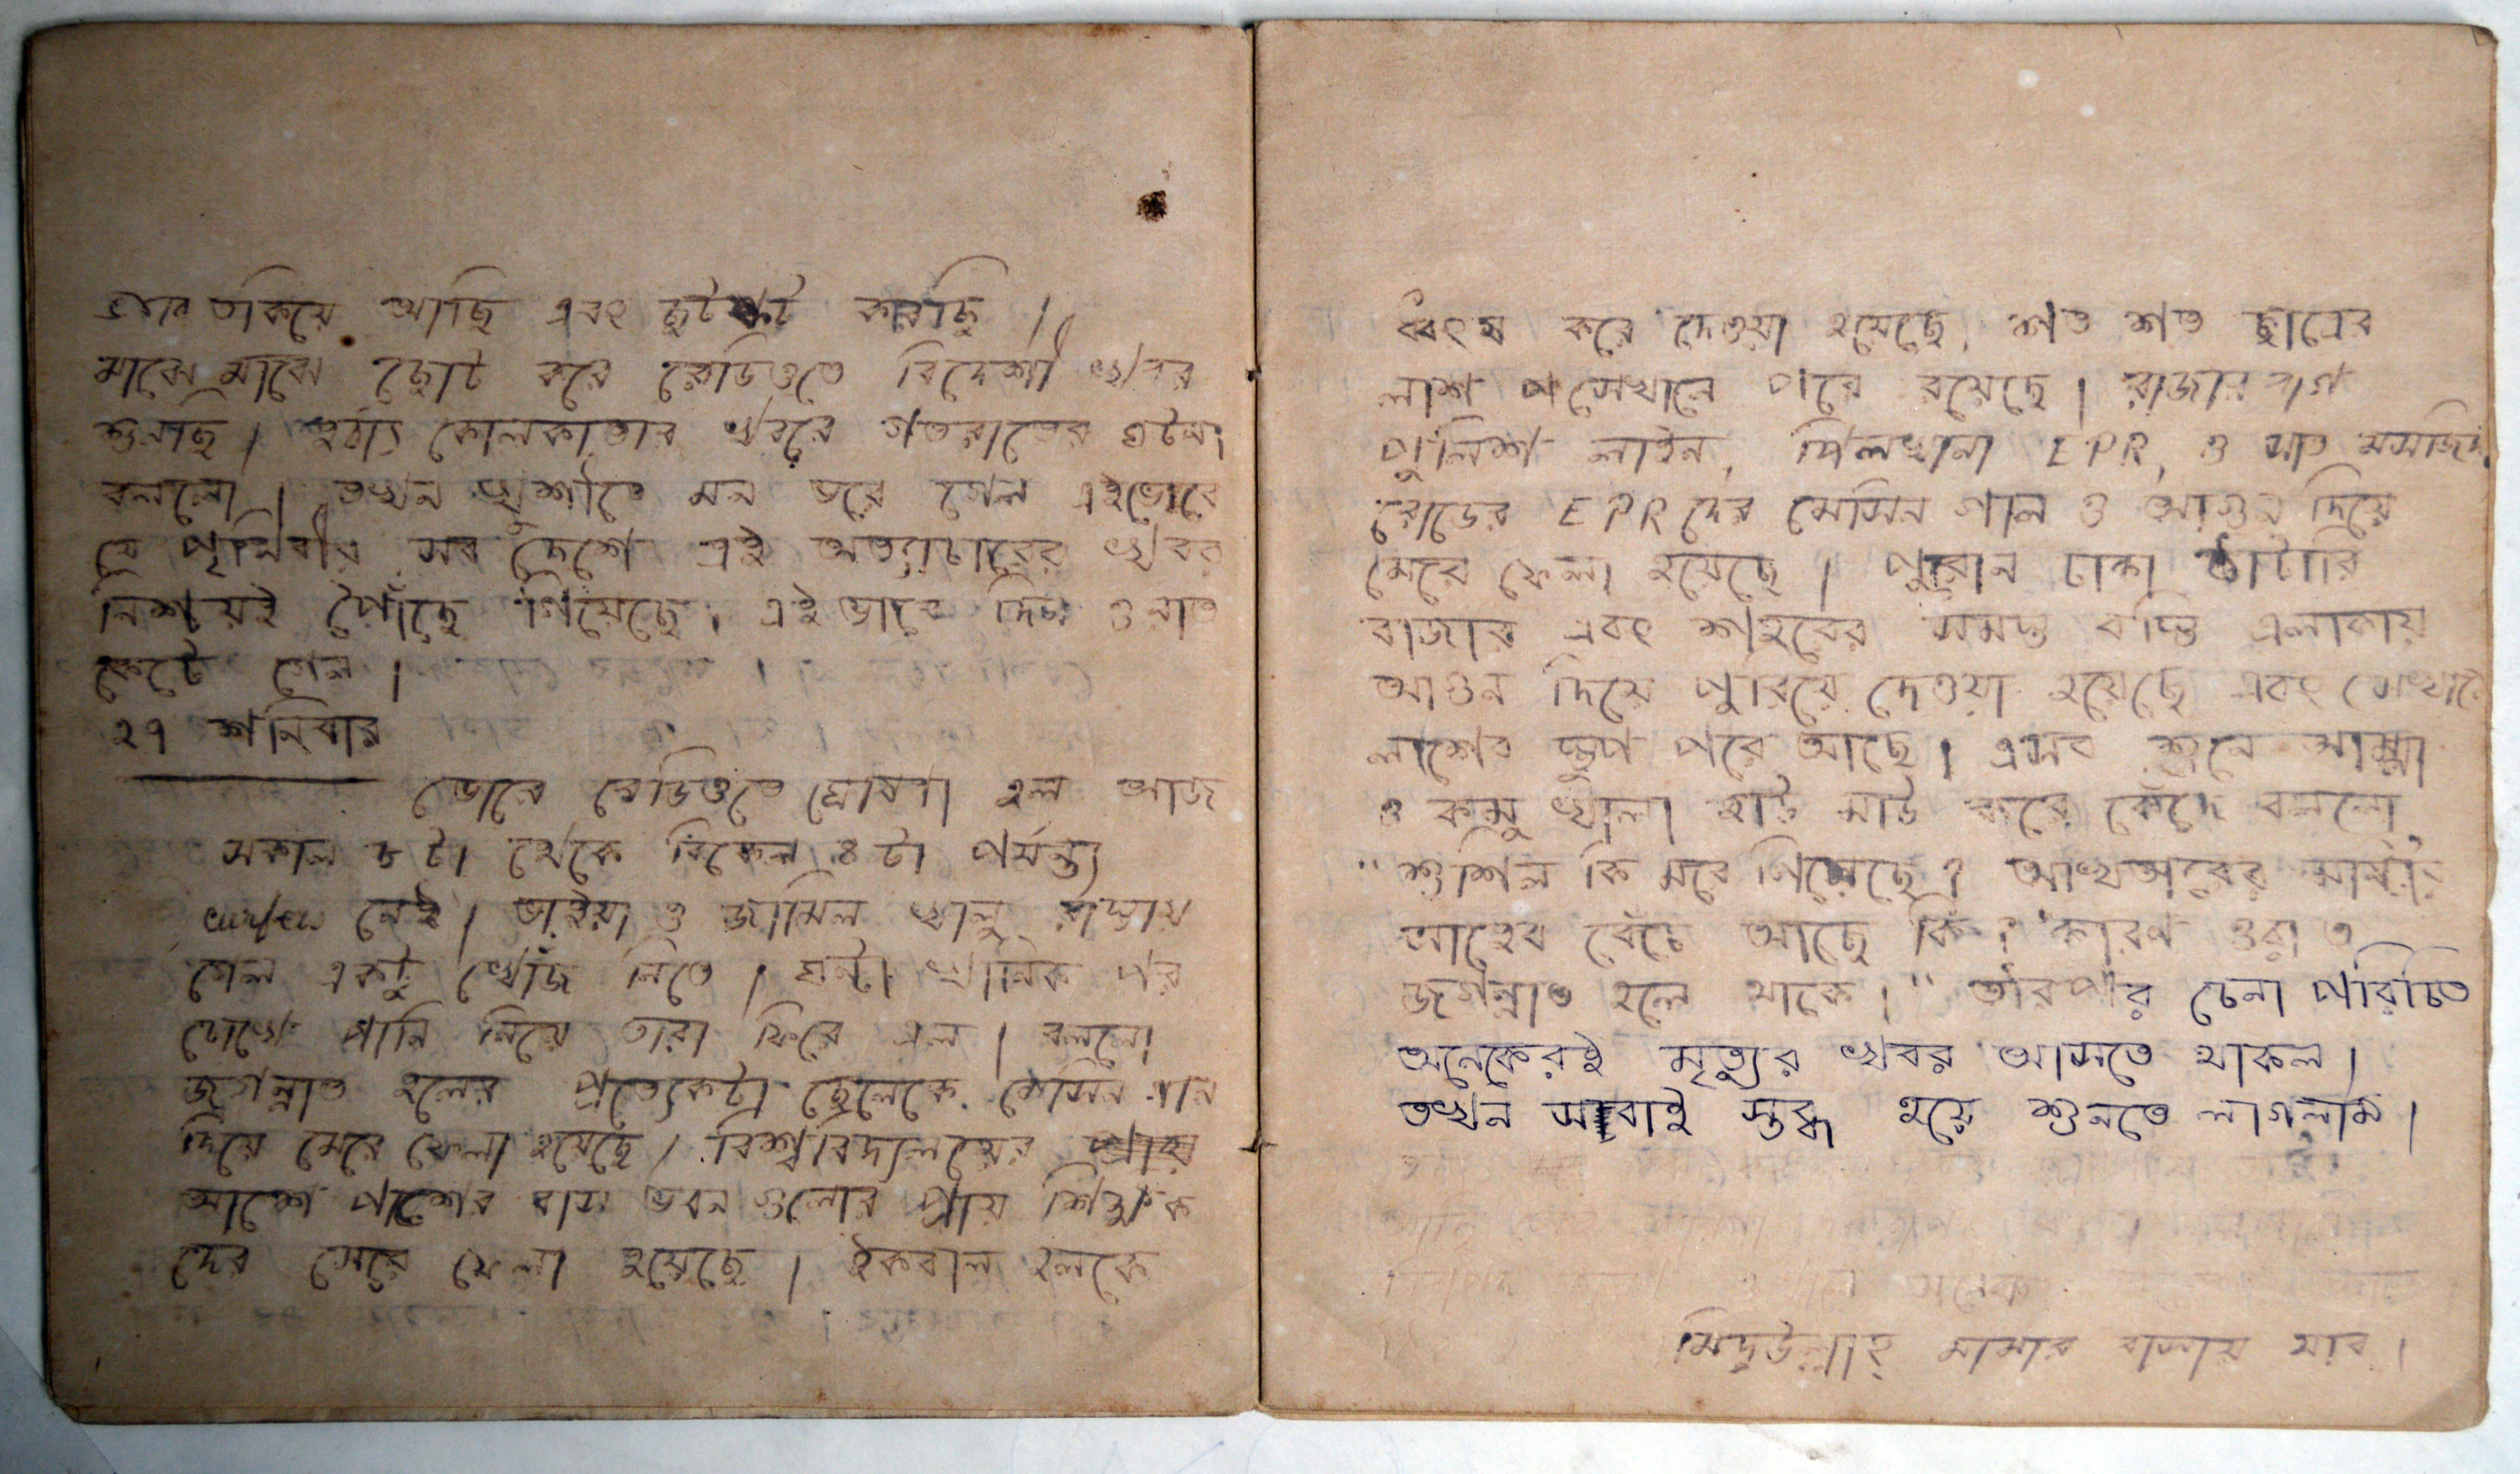 তাকিয়ে আছি এবং ছটফট করছি।
মাঝে মাঝে ছোট করে রেডিওতে বিদেশী খবর
শুনছি। হঠাৎ কোলকাতার খবরে গতরাতের ঘটনা
বললো। তখন খুশীতে মন ভরে গেল এইভেবে
যে পৃথিবীর সব দেশে এই অত্যাচারের খবর
নিশ্চয়ই পৌঁছে গিয়েছে। এইভাবে দিন ও রাত
কেটে গেল।
২৭ শনিবার
ভোরে রেডিওতে ঘোষণা হল আজ
সকাল ৮ টা থেকে বিকেল ৪ টা পর্যন্ত্য
curfew নেই। ভাইয়া ও জামিল খালু রাস্তায়
গেল একটু খোঁজ নিতে। ঘন্টা খানিক পর
চোখে পানি নিয়ে তারা ফিরে এল। বললো
জগন্নাত হলের প্রত্যেকটা ছেলেকে মেসিন গান
দিয়ে মেরে ফেলা হয়েছে। বিশ্ববিদ্যলয়ের
আশে পাশের বাস ভবন গুলোর প্রায় শিক্ষক
দের মেরে ফেলা হয়েছে। ইকবাল হলকে
ধ্বংস করে দেওয়া হয়েছে, শত শত ছাত্রের
লাশ সেখানে পরে রয়েছে। রাজার বাগ
পুলিশ লাইন, পিলখানা EPR, ও সাত মসজিদ
রোডের EPR দের মেসিন গান ও আগুন দিয়ে
মেরে ফেলা হয়েছে। পুরোন ঢাকা ঠাটারি
বাজার এবং শহরের সমস্ত বস্তি এলাকায়
আগুন দিয়ে পুরিয়ে দেওয়া হয়েছে এবং সেখানে
লাশের স্তুপ পরে আছে। এসব শুনে আম্মা
ও কমু খালা হাউ মাউ করে কেঁদে বললো
"শুশিল কি মরে গিয়েছে? আখতারের
বেঁচে আছে কি? কারণ ওরা ত
জগন্নাত হলে থাকে।" তারপর চেনা পরিচিত
অনেকেরই মৃত্যুর খবর আসতে থাকল।
তখন সবাই স্তব্ধ হয়ে শুনতে লাগলাম।
মামার বাসায় যাব।